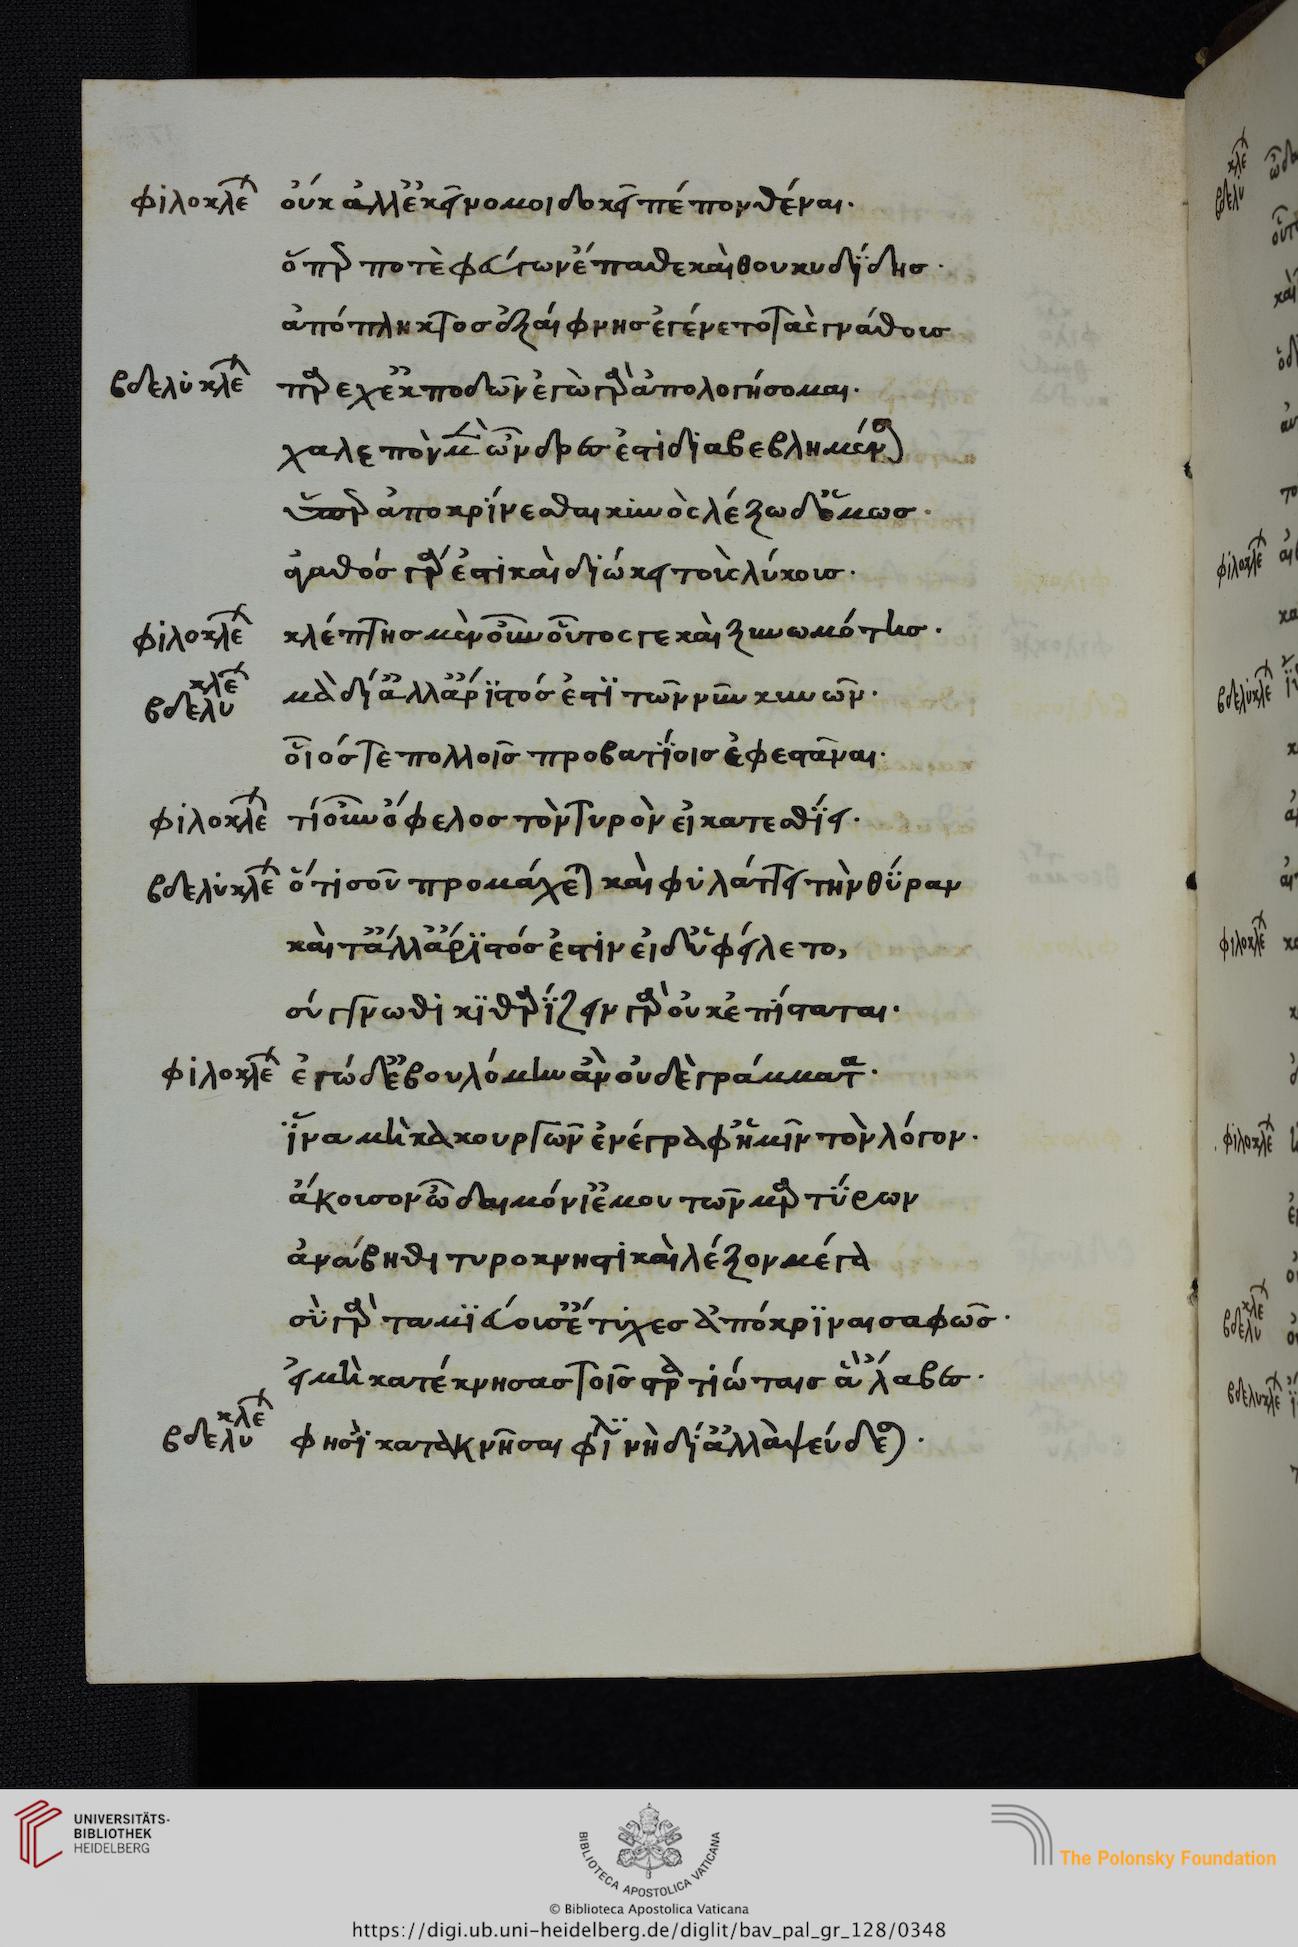 φιλοκλέ οὔκ ἀλλ' ἐκεῖνο μοι δοκεῖ πέπονθέναι·
ὅπερ ποτὲ φεύγων ἔπαθε καὶ θουκυδίδης·
ἀπόπληκτος ἐξαίφνης ἐγένετο τὰς γνάθους
βδελυκλέ πάρεχ' ἐκποδῶν ἐγὼ γὰρ ἀπολογήσομαι·
χαλεπὸν μὲν ὦνδρες ἐστὶ διαβεβλημένου
ὑπὲρ ἀποκρίνεσθαι κυνὸς λέξω δ' ὅμως·
ἀγαθός γάρ ἐστι καὶ διώκει τοὺς λύκους·
φιλοκλέ κλέπτης μὲν οὖν οὗτος γε καὶ ξυνωμότης·
κλέ
βδελυ μὰ δί' ἀλλ' ἄριστός ἐστι τῶν νῦν κυνῶν·
οἷός τε πολλοῖς προβατίοις ἐφεστάναι·
φιλοκλέ τί οὖν ὄφελος τὸν τυρὸν εἰ κατεσθίει·
βδελυκλέ ὅ τι σοῦ προμάχεται καὶ φυλάττει τὴν θύραν
καὶ τἄλλ' ἄριστός ἐστιν εἰ δ' ὑφείλετο,
σύγγνωθι κιθαρίζειν γὰρ οὐκ ἐπίσταται·
φιλοκλέ ἐγώ δ' ἐβουλόμην ἂν οὐδὲ γράμματα·
ἵνα μὴ κακουργῶν ἐνέγραφ' ἡμῖν τὸν λόγον·
ἄκουσον ὦ δαιμόνιέ μου τῶν μαρτύρων
ἀνάβηθι τυρόκνηστι καὶ λέξον μέγα
σὺ γὰρ ταμιεύουσ' ἔτυχες ἀπόκριναι σαφῶς·
εἰ μὴ κατέκνησας τοῖς στρατιώταις ἃ 'λαβες·
κλέ
βδελυ φησὶ κατακνῆσαι φιλ νὴ δί' ἀλλὰ ψεύδεται·
κλέ
βδελύ
φιλοκλέ
βδελυκλέ
φιλοκλέ
φιλοκλέ
κλέ
βδελυ
βδελυκλέ
UNIVERSITÄTS-
BIBLIOTHEK
HEIDELBERG
BIBLIOTECA APOSTOLICA VATICANA
The Polonsky Foundation
© Biblioteca Apostolica Vaticana
https://digi.ub.uni-heidelberg.de/diglit/bav_pal_gr_128/0348